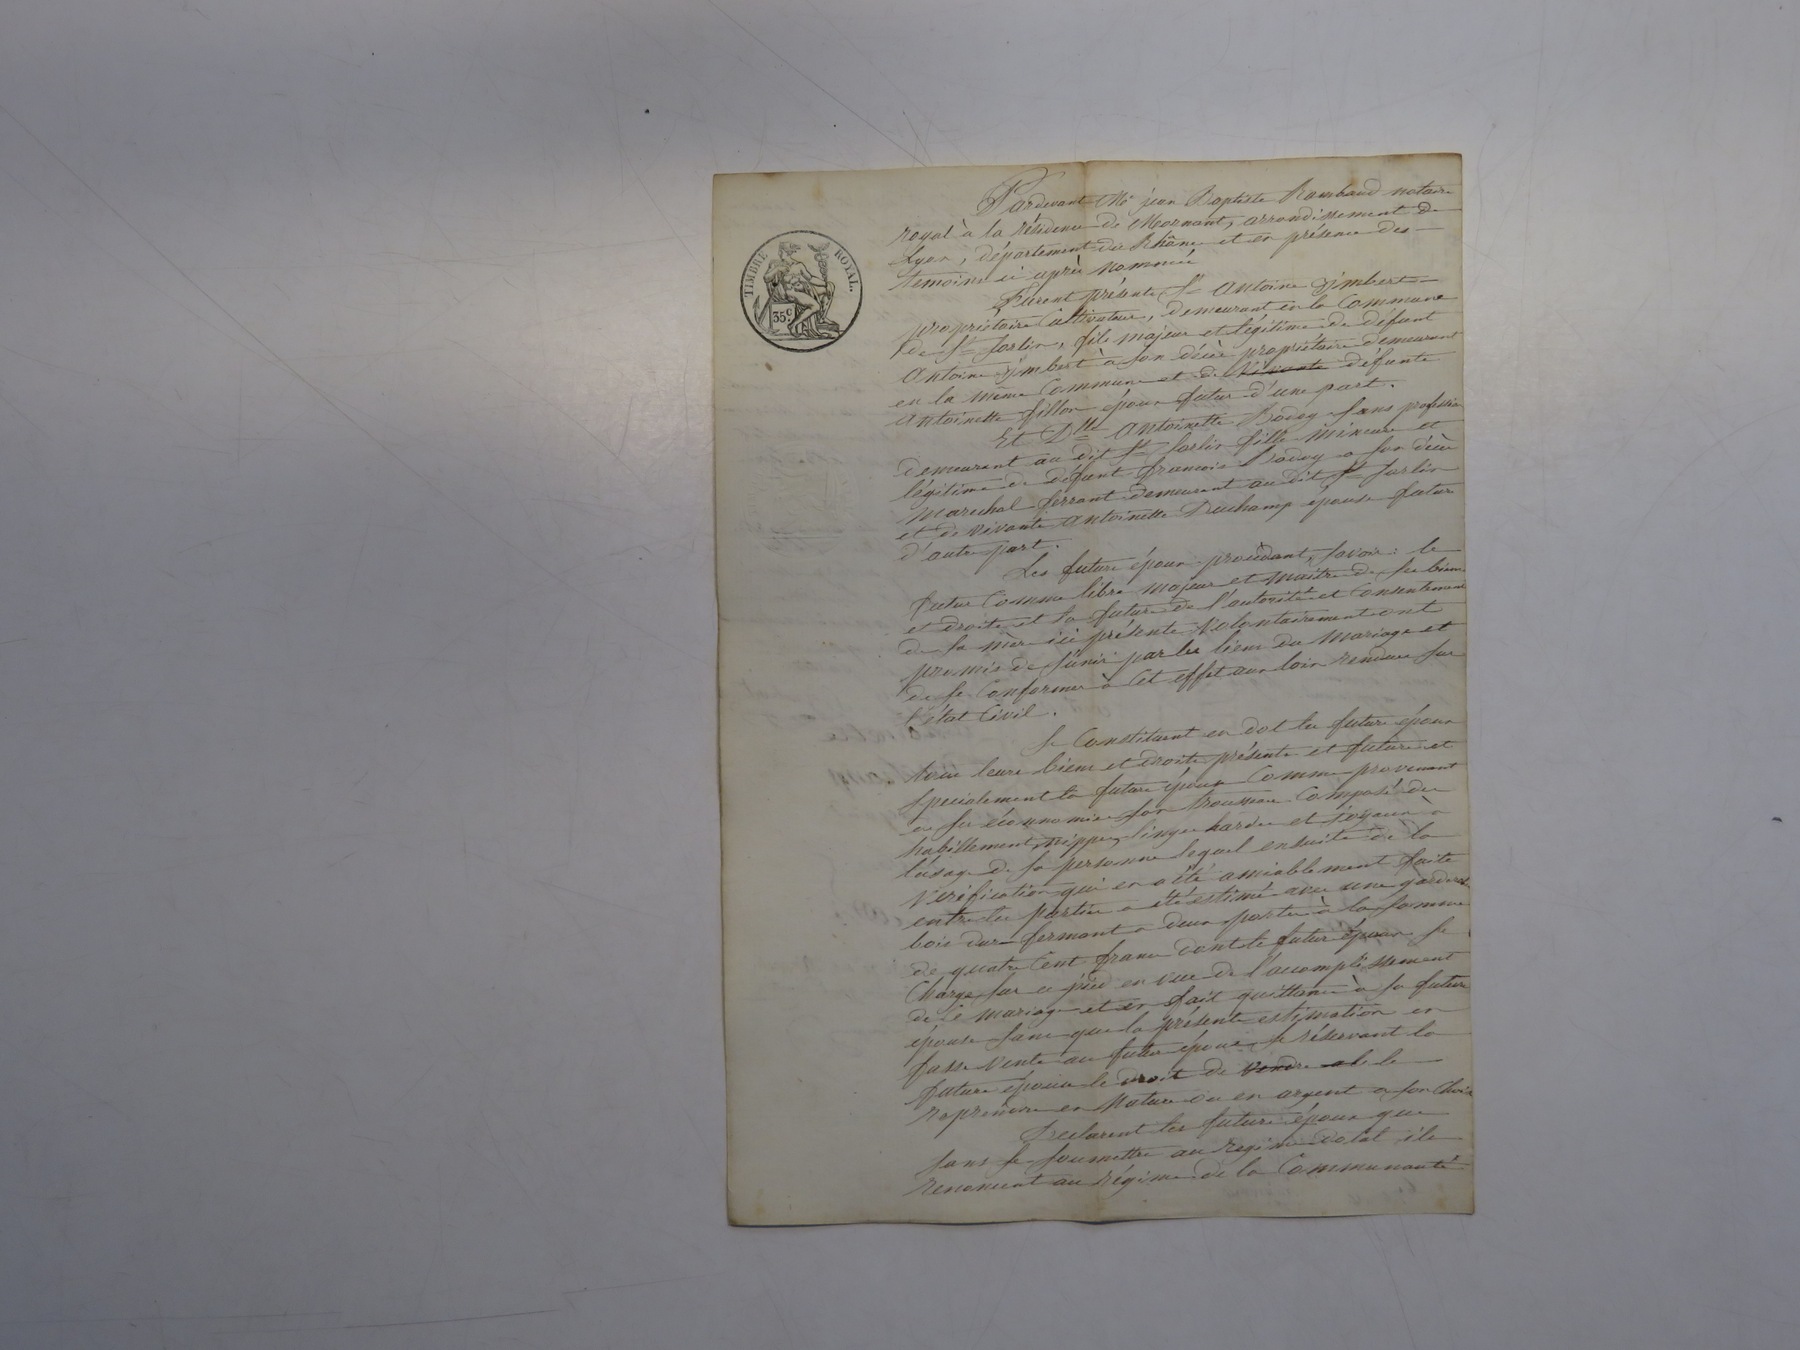 TIMBRE ROYAL.
35 c.
Pardevant Me jean Baptiste Rambaud notaire
royal à la résidence de Mornant, arrondissement de
Lyon, département du Rhône et en présence des
temoins ci après nommés
Furent présents Sr Antoine Jimbert
propriétaire Cultivateur, demeurant en la Commune
de St Sorlin, fils majeur et légitime de défunt
Antoine Jimbert à son décès propriétaire demeurant
en la même Commune et de vivante défunte
Antoinette fillon époux futur d'une part.
Et Dlle Antoinette sans profession
demeurant au dit St Sorlin fille mineure et
légitime de défunt francois a son décès
Marechal ferrant demeurant au dit St Sorlin
et de vivante Antoinette Duchamp épouse future
d'autre part.
Les futurs époux procédant, savoir : le
futur Comme libre majeur et maitre de ses biens
et droits et la future de l'autorité et Consentement
de sa mère ici présente Volontairement ont
promis de s'unir par les liens du Mariage et
de se Conformer à Cet effet aux loix rendues sur
l'état Civil.
Se Constituent en dot les futurs époux
tous leurs biens et droits présents et futurs et
specialement la future épouse Comme provenant
de ses économies son trousseau Composé de
habillements, nippes, linges hardes et joyaux à
l'usage de sa personne lequel ensuite de la
Vérification qui en a été amiablement faite
entre les parties a été estimé avec une garderobe
bois dur fermant a deux portes à la somme
de quatre Cent francs dont le futur époux se
Charge sur ce pied en vue de l'accomplissement
de ce mariage et en fait quittance à sa future
épouse sans que la présente estimation en
fasse Vente au futur époux se réservant la
future épouse le droit de vendre le
reprendre en Nature ou en argent a son Choix
Declarent les futurs époux que
sans se soumettre au regime dotal ils
renoncent au régime de la Communauté